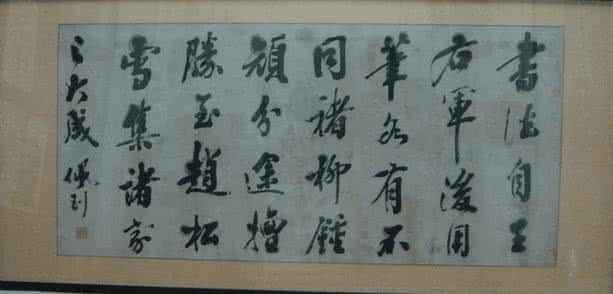 書法自王
右軍後用
筆各有不
同褚柳鍾
顔分途擅
勝至趙松
雪集諸家
之大成